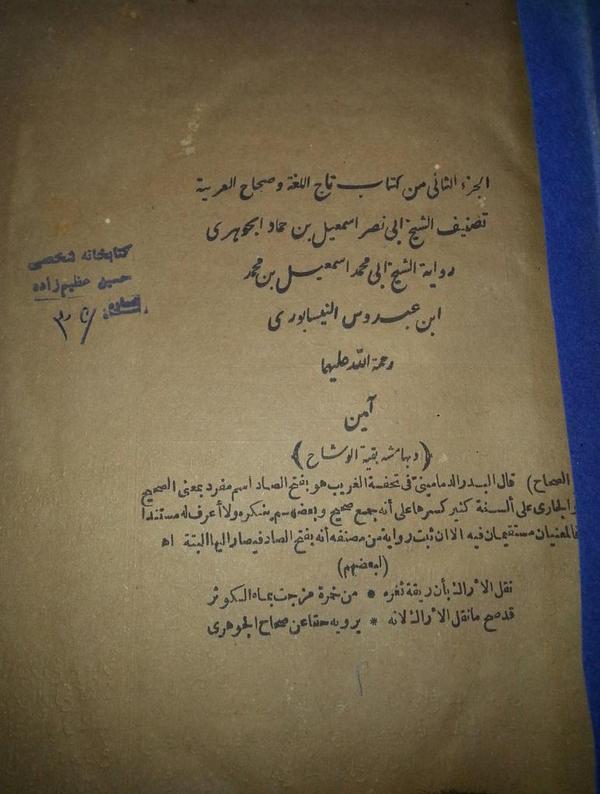 الجزء الثاني من كتاب تاج اللغة وصحاح العربية
تصنيف الشيخ ابي نصر اسمعيل بن حماد الجوهرى
رواية الشيخ ابي محمد اسمعيل بن محمد
ابن عبدوس النيسابورى
رحمة الله عليهما
آمين
(وبهامشه بقية الوشاح)
الصحاح) قال البدر الدمامينى في تحفة الغريب هو بفتح الصاد اسم مفرد بمعنى الصحيح
والجارى على ألسنة كثير كسرها على أنه جمع صحيح وبعضهم ينكره ولا أعرف له مستندا
فالمعنيان مستقيمان فيه الا ان ثبت رواية من مصنفه أنه بفتح الصاد فيصار اليها البتة اه
(لبعضهم)
نقل الأراك بأن ريقة ثغره * من خمرة مزجت بماء الكوثر
قد صح ما نقل الأراك لانه * يرويه حقا عن صحاح الجوهرى
كتابخانه شخصى
حسين عظيم زاده
شماره